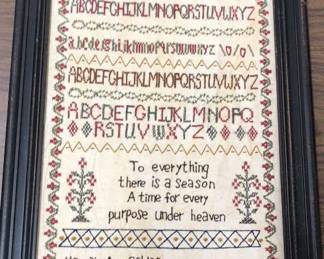 ABCDEFGHIJKLMNOPQRSTUVWXYZ
ABCDEFGHIJKLMNOPQRSTUVWXYZ
ABCDEFGHIJKLMNOPQ
RSTUVWXYZ
To everything
there is a season
A time for every
purpose under heaven